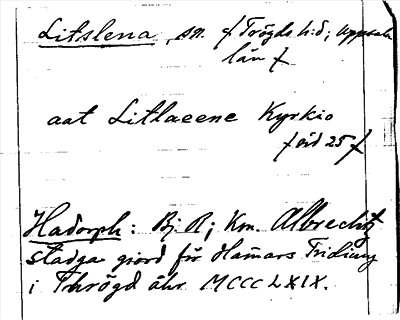 Litslena, sn. / Trögds hd; Uppsala
län /
aat Litlaeene Kyrkio
/ sid 25 /
Hadorph: Bj. R; Km. Albrechtz
stadga giord för Hamars Tridiung
i Thrögd åhr MCCCLXIX.